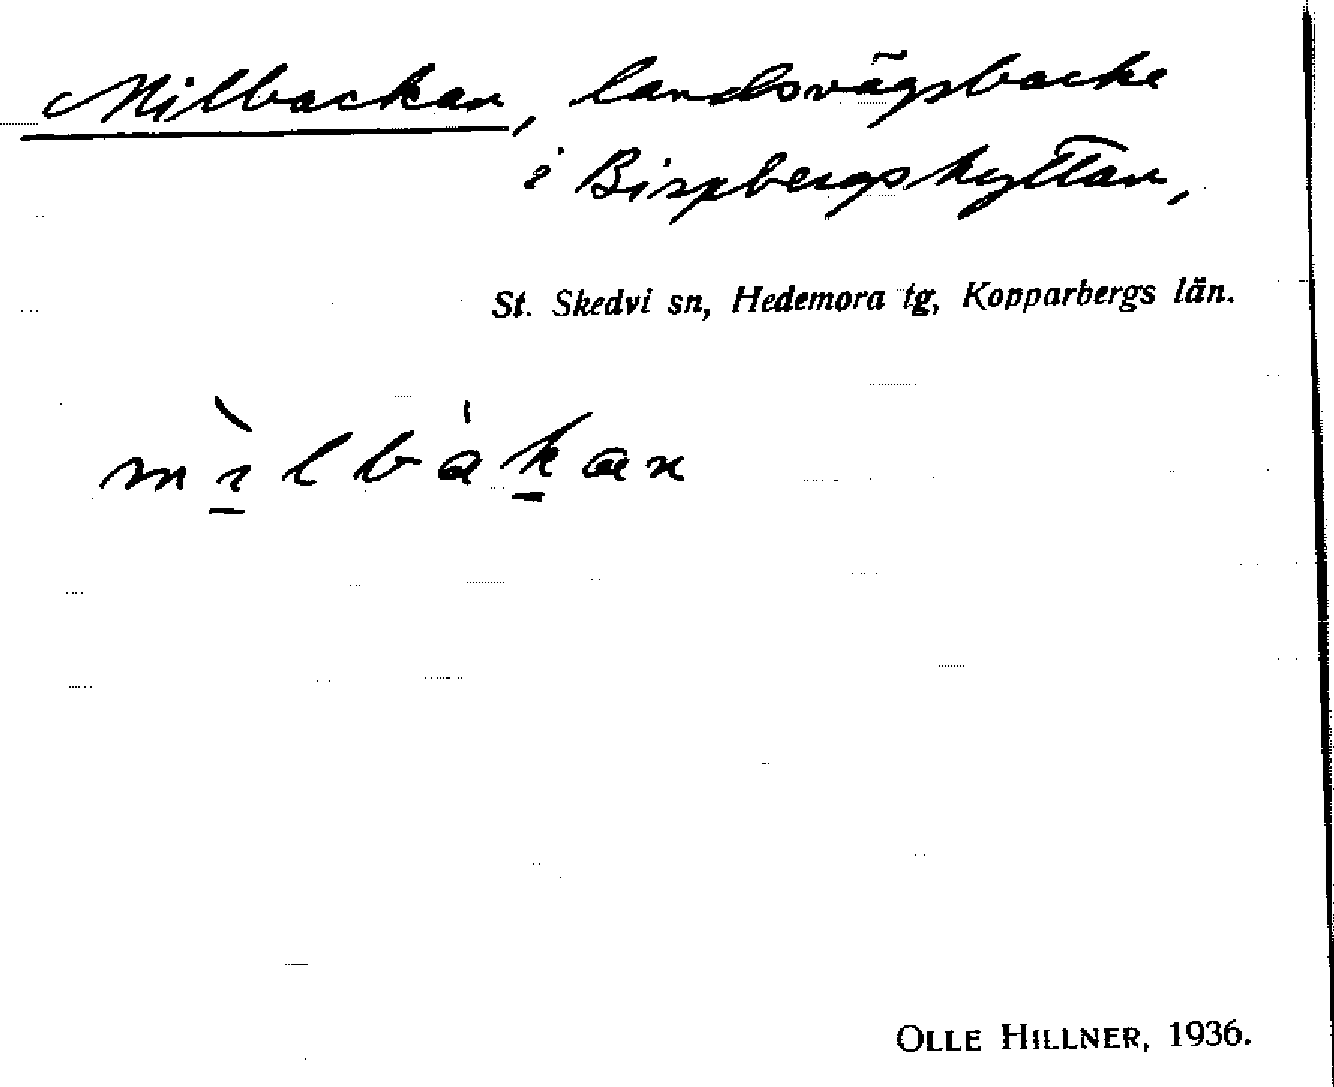 Milbackan, landsvägsbacke
i Bispbergshyttan,
St. Skedvi sn, Hedemora tg, Kopparbergs län.
mı̀lbákan
OLLE HILLNER, 1936.